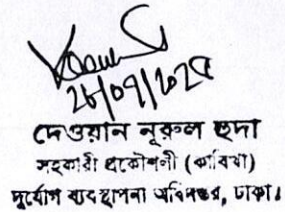 ২৮/০৭/২০২৫
দেওয়ান নূরুল হুদা
সহকারী প্রকৌশলী (কাবিখা)
দুর্যোগ ব্যবস্থাপনা অধিদপ্তর, ঢাকা।